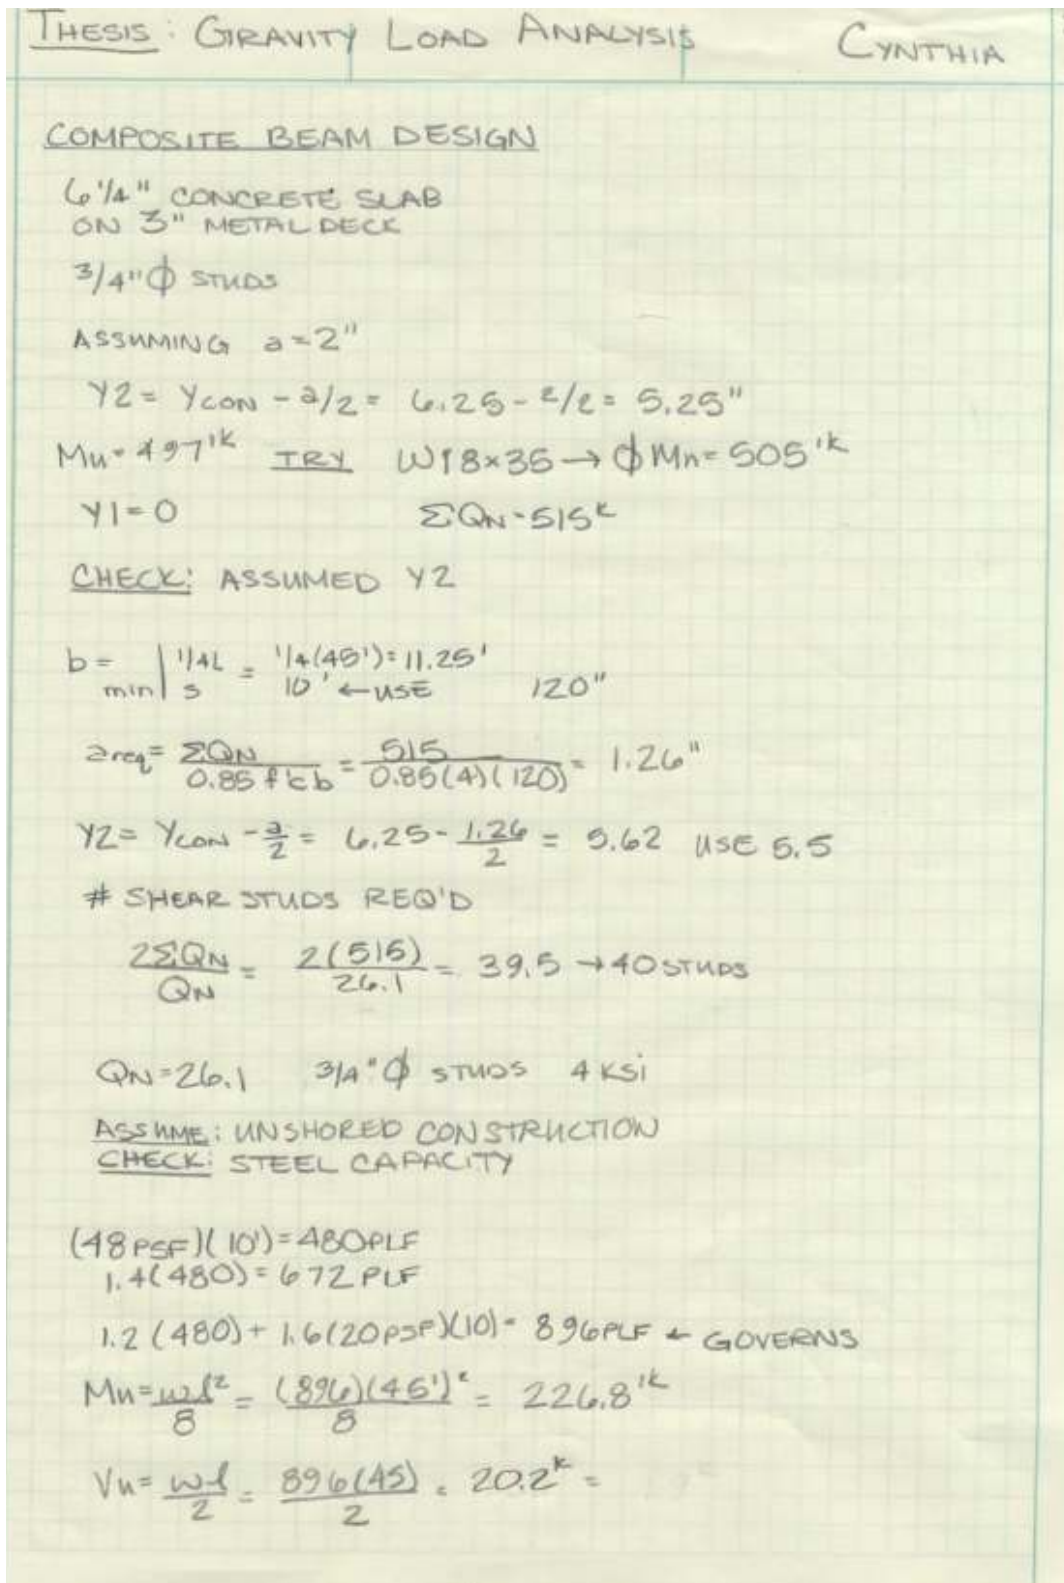 THESIS: GRAVITY LOAD ANALYSIS CYNTHIA
COMPOSITE BEAM DESIGN
6 1/4" CONCRETE SLAB
ON 3" METAL DECK
3/4"Φ STUDS
ASSUMING a=2"
Y2 = YCON - a/2 = 6.25 - 2/2 = 5.25"
Mu=497'k TRY W18×35 → ΦMn= 505'k
Y1=0 ΣQN=515k
CHECK: ASSUMED Y2
b = min | 1/4L = 1/4(45') = 11.25'
s 10' ← USE 120"
areq = ΣQN / 0.85 f'c b = 515 / 0.85(4)(120) = 1.26"
Y2 = YCON - a/2 = 6.25 - 1.26/2 = 5.62 USE 5.5
# SHEAR STUDS REQ'D
2ΣQN / QN = 2(515) / 26.1 = 39.5 → 40 STUDS
QN=26.1 3/4"Φ STUDS 4 KSi
ASSUME: UNSHORED CONSTRUCTION
CHECK: STEEL CAPACITY
(48 PSF)(10') = 480PLF
1.4(480) = 672 PLF
1.2(480) + 1.6(20PSF)(10) = 896PLF ← GOVERNS
Mu = wl²/8 = (896)(45')²/8 = 226.8'k
Vu = wl/2 = 896(45)/2 = 20.2k =